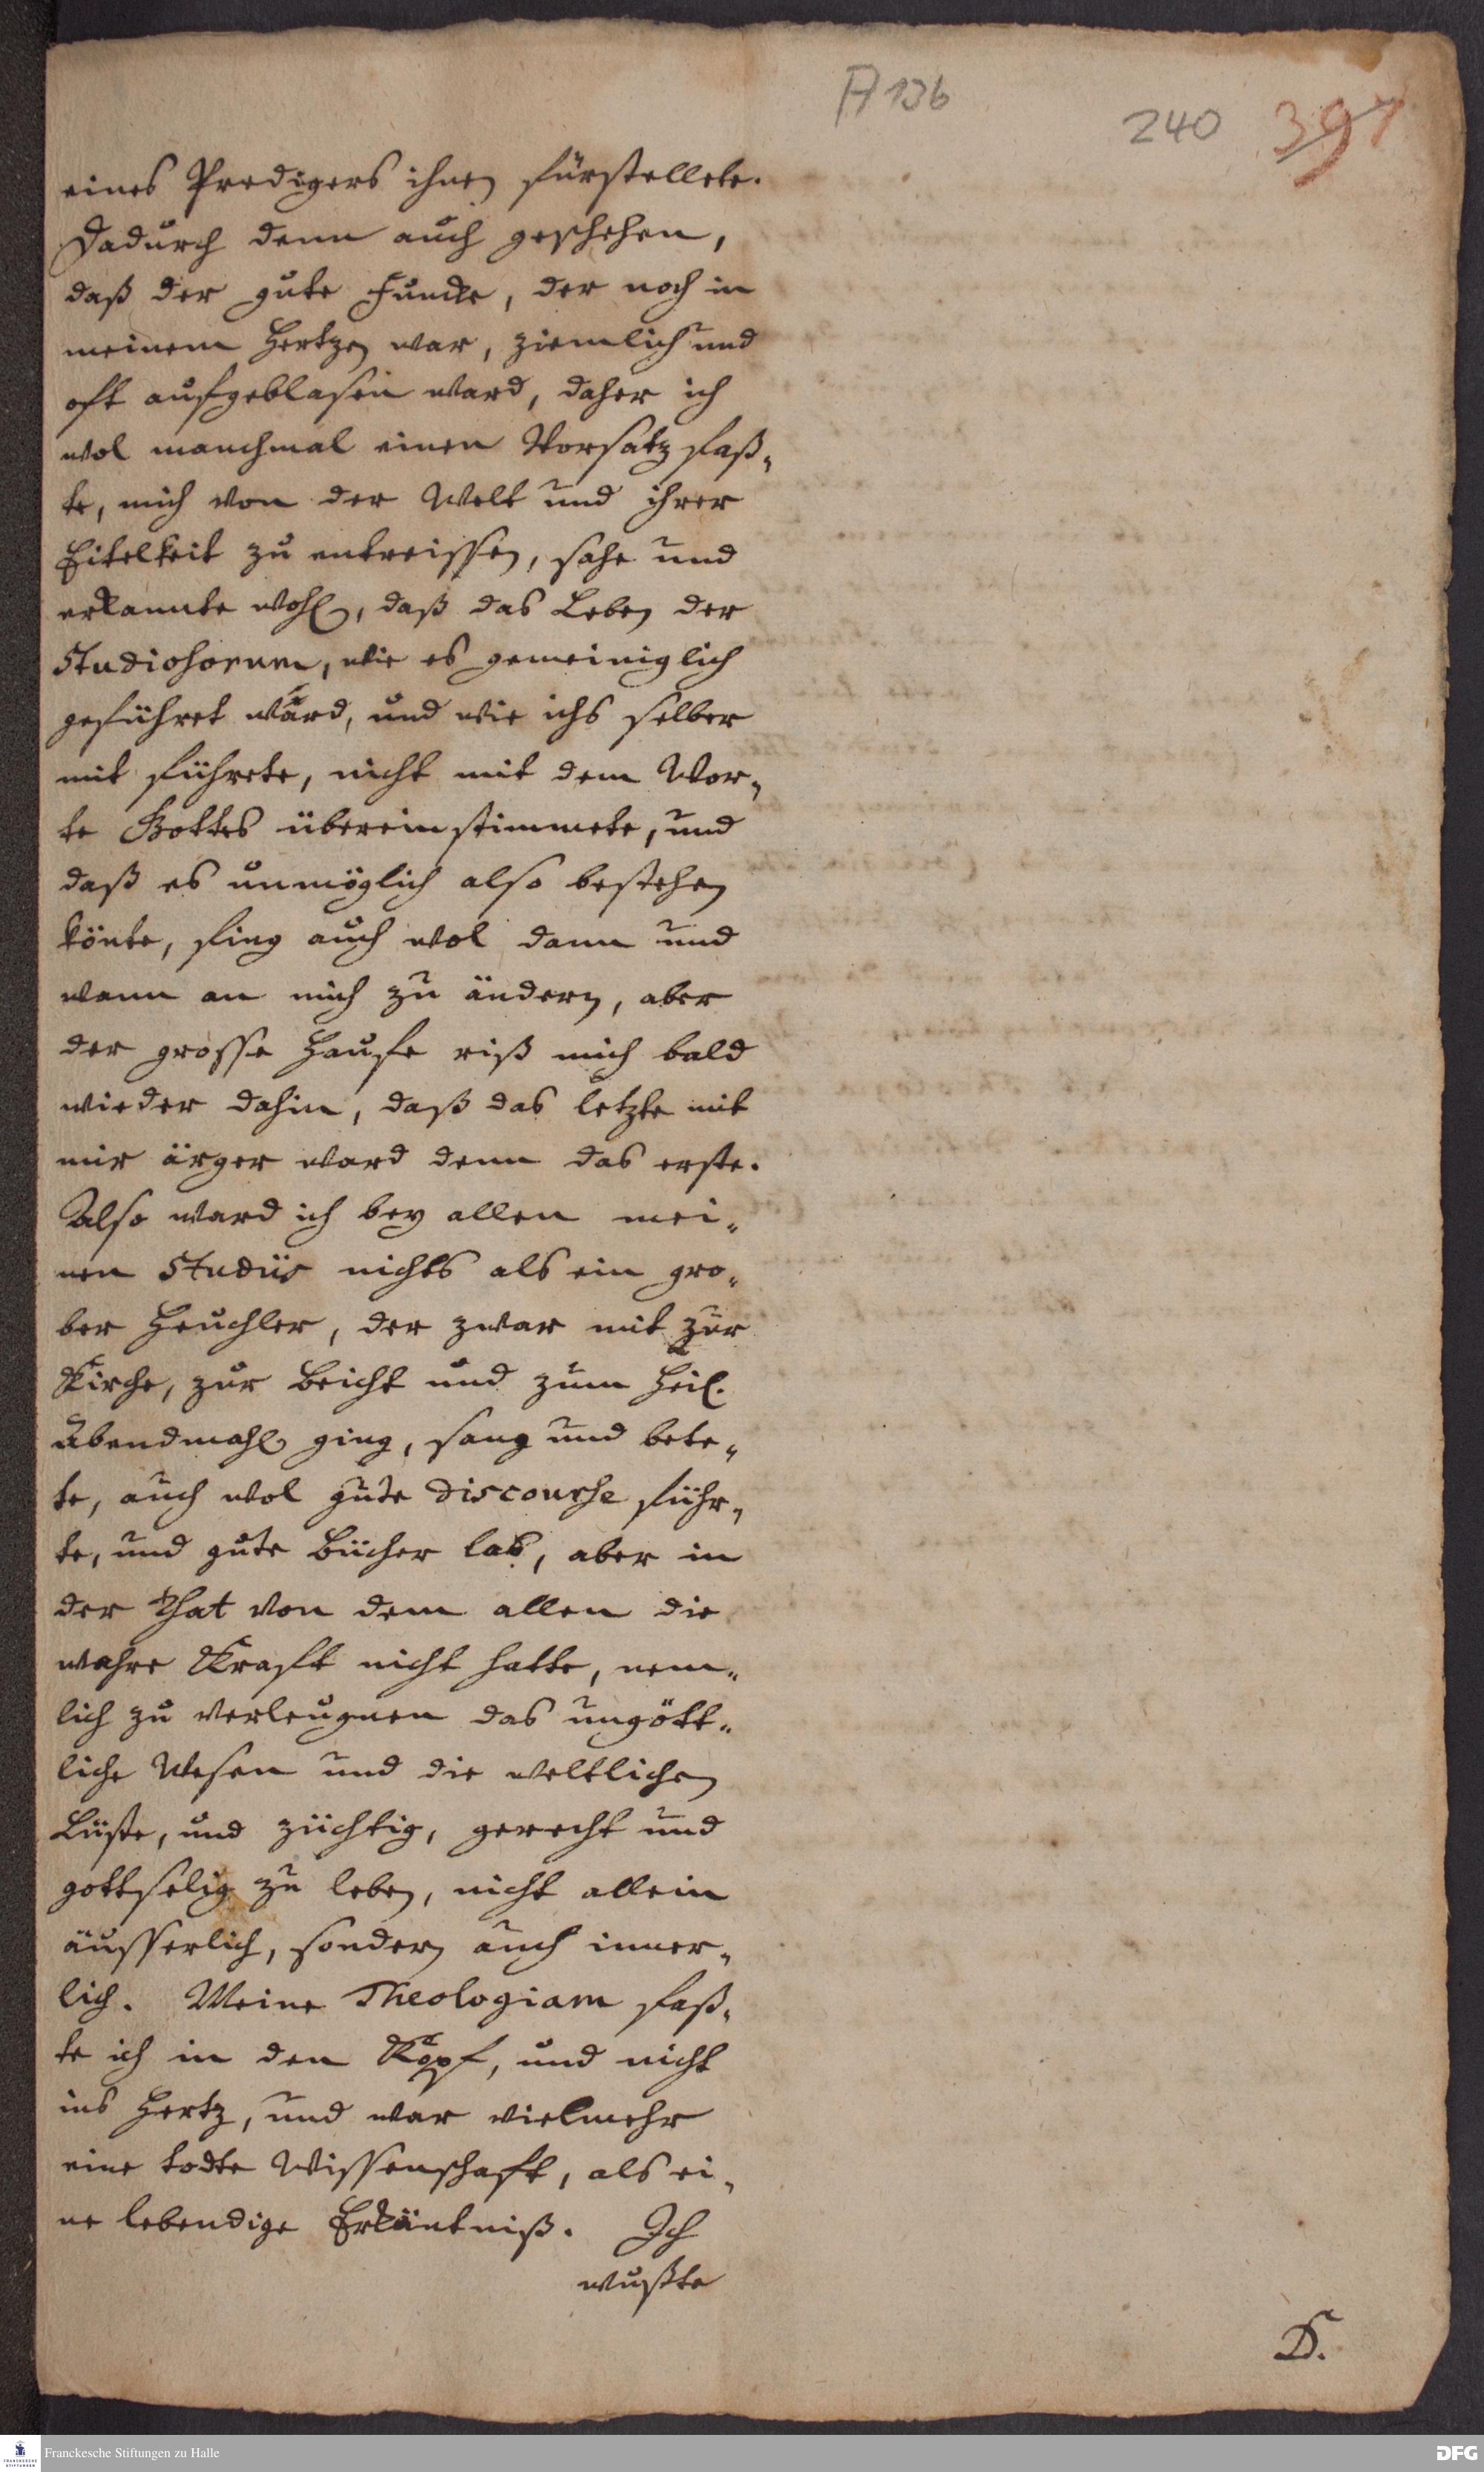 A 136
240
397
eines Predigers ihnen fürstellete.
Dadurch denn auch geschehen,
daß der gute Funcke, der noch in
meinem Hertzen war, ziemlich und
oft aufgeblasen ward, daher ich
wol manchmal einen Vorsatz faß„
te, mich von der Welt und ihrer
Eitelkeit zu entreissen, sahe und
erkannte wohl, daß das Leben der
Studiosorum, wie es gemeiniglich
geführet ward, und wie ichs selber
mit führete, nicht mit dem Wor„
te Gottes übereinstimmete, und
daß es unmöglich also bestehen
könte, fing auch wol dann und
wann an mich zu ändern, aber
der grosse Haufe riß mich bald
wieder dahin, daß das letzte mit
mir ärger ward denn das erste.
Also ward ich bey allen mei„
nen Studiis nichts als ein gro„
ber Heuchler, der zwar mit zur
Kirche, zur Beicht und zum Heil.
Abendmahl ging, sang und bete„
te, auch wol gute discourse führ„
te, und gute Bücher laß, aber in
der That von dem allen die
wahre Kraft nicht hatte, nem„
lich zu verleugnen das ungött„
liche Wesen und die weltlichen
Lüste, und züchtig, gerecht und
gottselig zu leben, nicht allein
äusserlich, sondern auch inner„
lich. Meine Theologiam faß„
te ich in den Kopf, und nicht
ins Hertz, und war vielmehr
eine todte Wissenschaft, als ei„
ne lebendige Erkäntniß. Ich
wußte
D.
Franckesche Stiftungen zu Halle
FRANCKESCHE STIFTUNGEN
DFG